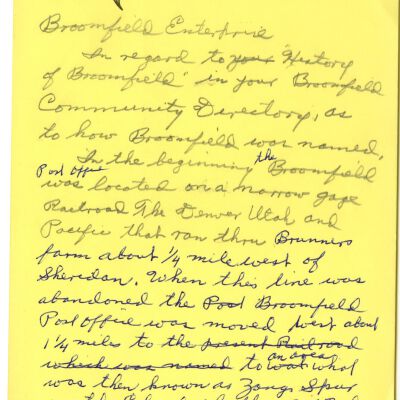 Broomfield Enterprise
In regard to your "History
of Broomfield" in your Broomfield
Community Directory, as
to how Broomfield was named,
In the beginning the Broomfield
Post Office
was located on a narrow gage
Railroad The Denver Utah and
Pacific that ran thru Brunners
farm about 1/4 mile west of
Sheridan. When this line was
abandoned the Post Broomfield
Post Office was moved west about
1 1/4 miles to the present Railroad
which was named to an area what
was then known as Zangs Spur